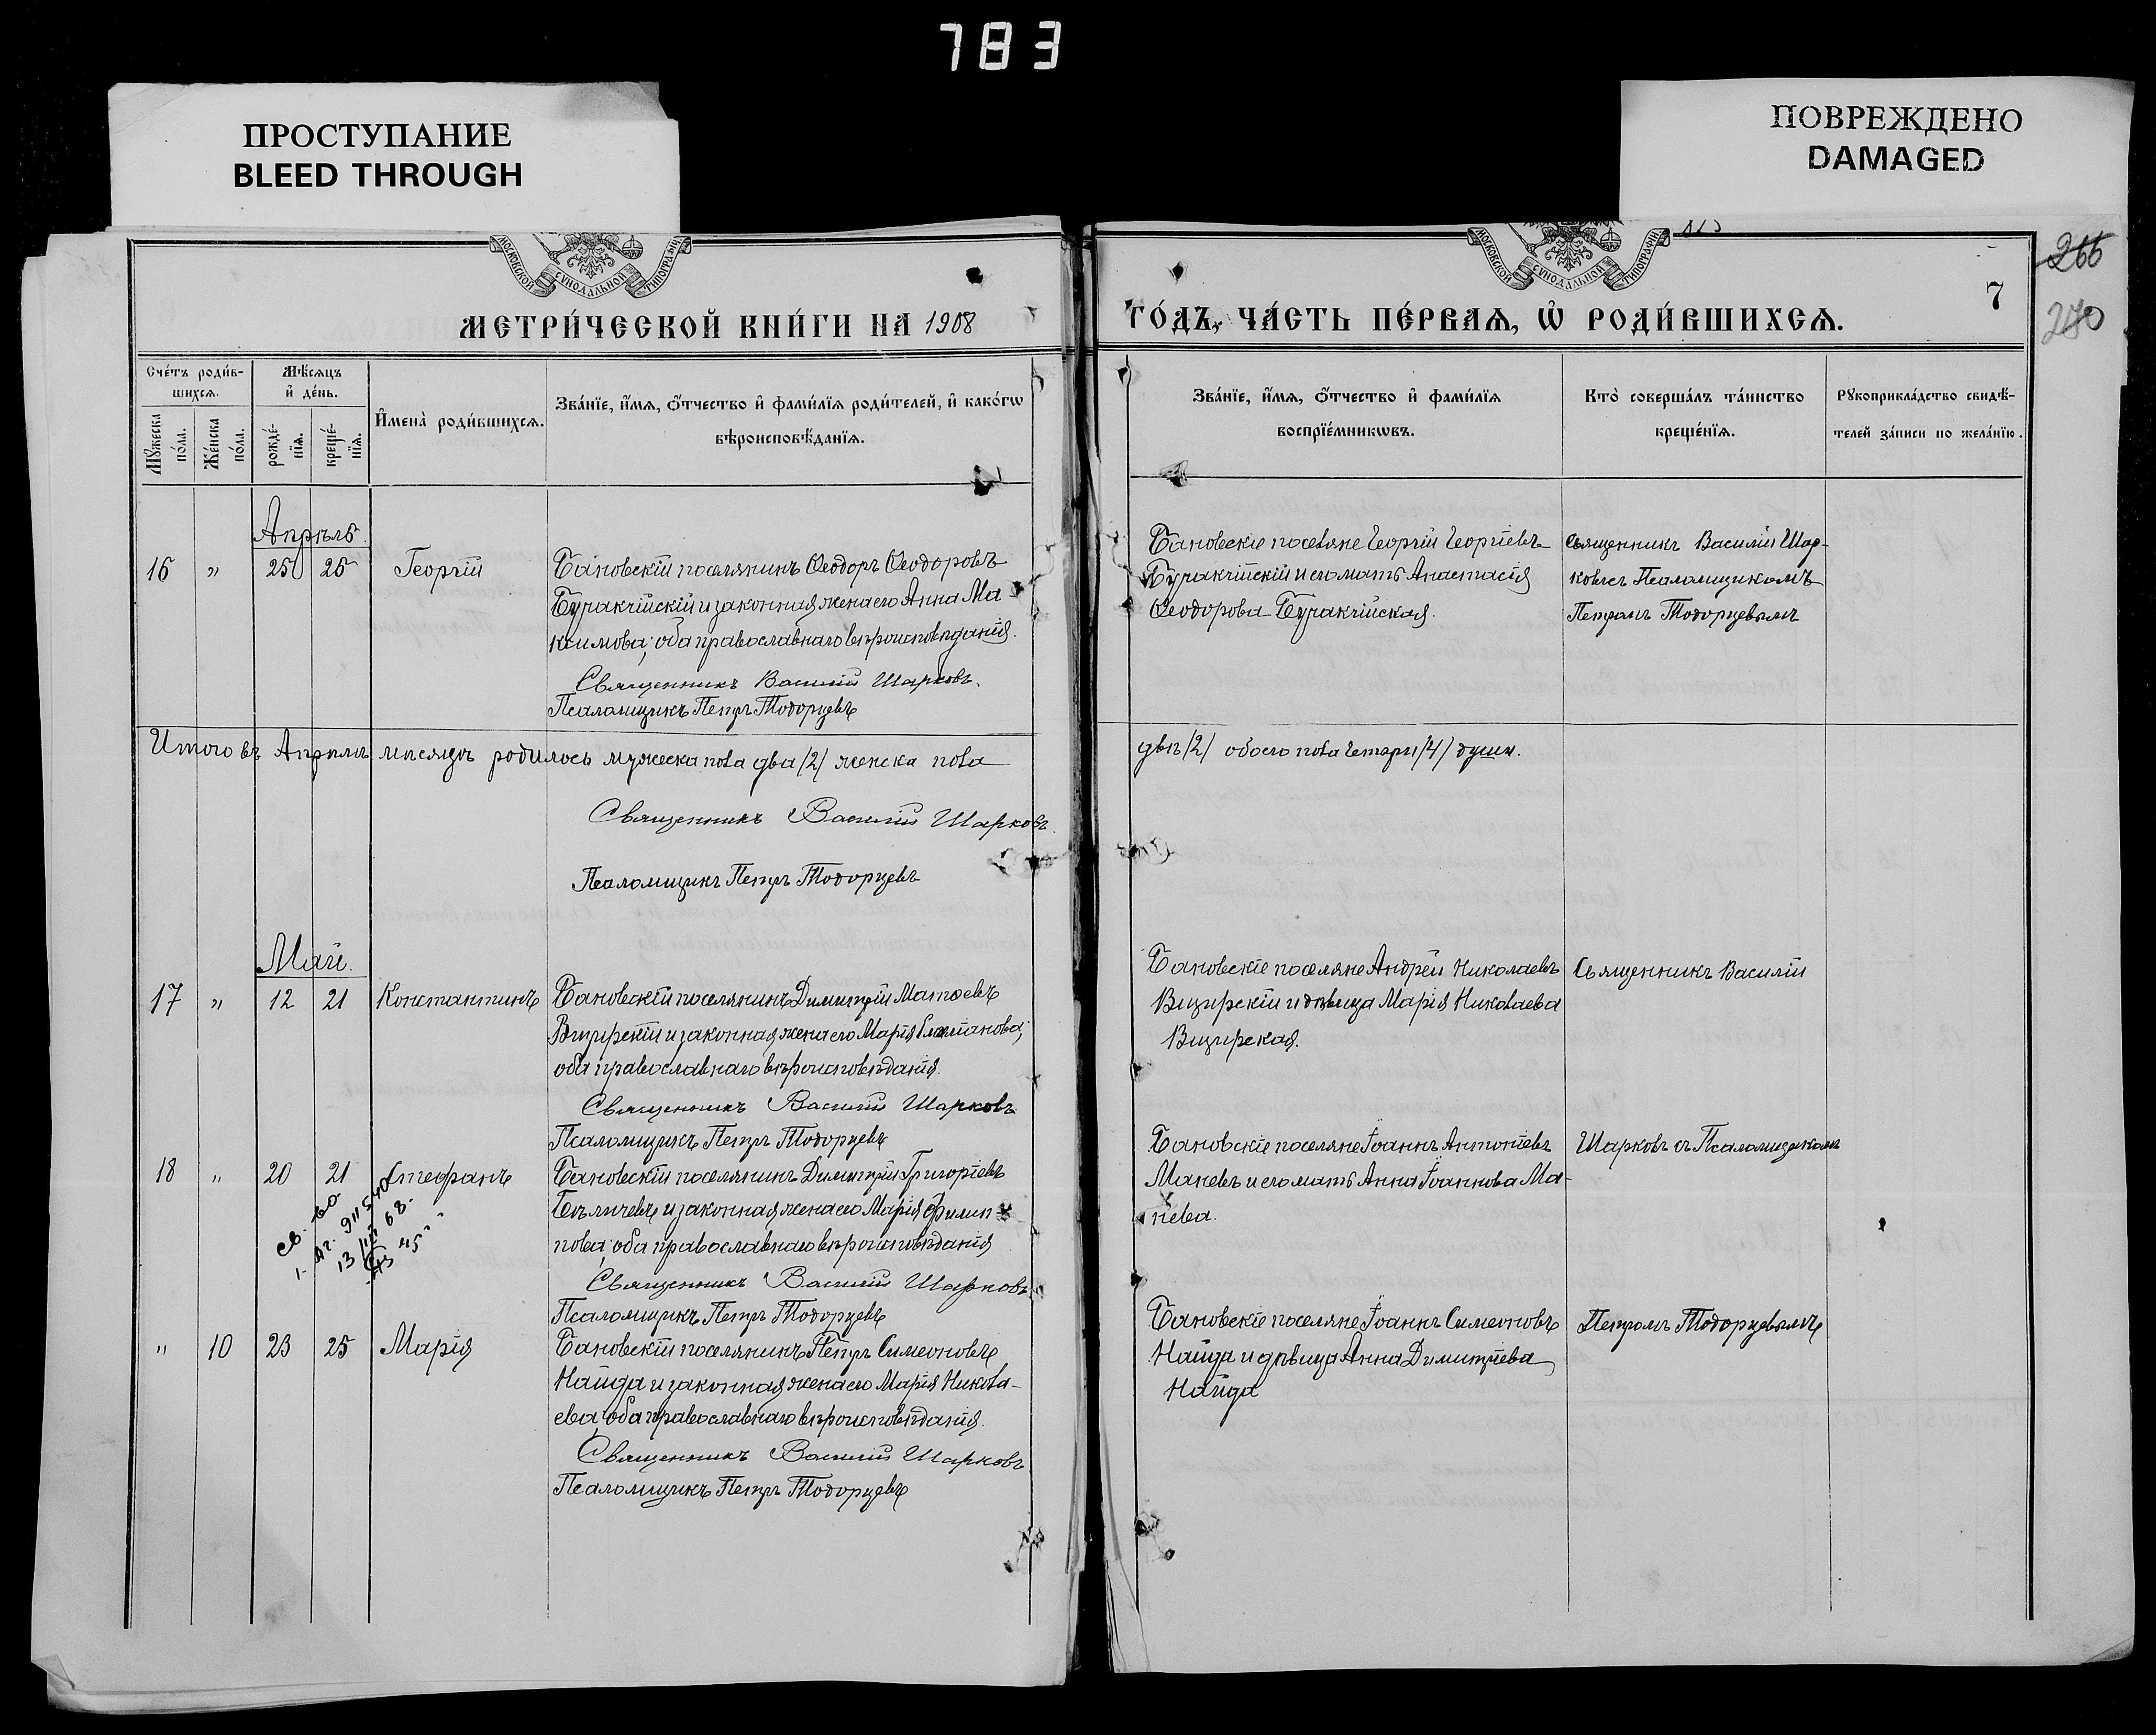 783
ПРОСТУПАНИЕ
BLEED THROUGH
ПОВРЕЖДЕНО
DAMAGED
МОСКОВСКОЙ СѴНОДАЛЬНОЙ ТИПОГРАФІИ
МОСКОВСКОЙ СѴНОДАЛЬНОЙ ТИПОГРАФІИ
266
7
МЕТРИ́ЧЕСКОЙ КНИ́ГИ НА 1908
ГО́ДЪ, ЧА́СТЬ ПЕ́РВАѦ, Ѡ҆ РОДИ́ВШИХСѦ.
Сче́тъ роди́в-
шихсѧ.
Мѣ́сѧцъ
и҆ де́нь.
И҆мена̀ роди́вшихсѧ.
Зва́нїе, и҆́мѧ, ѻ҆́тчество и҆ фами́лїѧ роди́телей, и҆ како́гѡ
вѣроисповѣ́данїѧ.
Мꙋ́жеска
по́ла.
Же́нска
по́ла.
рожде́-
нїѧ.
креще́-
нїѧ.
Зва́нїе, и҆́мѧ, ѻ҆́тчество и҆ фами́лїѧ
воспрїе́мникѡвъ.
Кто̀ соверша́лъ та́инство
креще́нїѧ.
Рꙋкоприкла́дство свидѣ́-
телей за́писи по жела́нїю.
Апрѣль.
16 " 25 25 Георгій
Бановскій поселянинъ Ѳеодоръ Ѳеодоровъ
Буракчійскій и законная жена его Анна Ма-
ксимова; оба православнаго вѣроисповѣданія.
Священникъ Василій Шарковъ.
Псаломщикъ Петръ Тодорцевъ
Бановскіе поселяне Георгій Георгіевъ
Буракчійскій и его мать Анастасія
Ѳеодорова Буракчійская.
Священникъ Василій Шар-
ковъ съ Псаломщикомъ
Петромъ Тодорцевымъ
Итого въ Апрѣлѣ мѣсяцѣ родилось мужеска пола два /2/ женска пола
двѣ /2/ обоего пола четыри /4/ души.
Священникъ Василій Шарковъ.
Псаломщикъ Петръ Тодорцевъ
Май.
17 " 12 21 Константинъ
Бановскій поселянинъ Димитрій Матѳеевъ
Вицирскій и законная жена его Марія
оба православнаго вѣроисповѣданія.
Священникъ Василій Шарковъ
Псаломщикъ Петръ Тодорцевъ
Бановскіе поселяне Андрей Николаевъ
Вицирскій и дѣвица Марія Николаева
Вицирская.
Священникъ Василій
18 " 20 21 Стефанъ
Бановскій поселянинъ Димитрій Григоріевъ
и законная жена его Марія Филип-
пова; оба православнаго вѣроисповѣданія
Священникъ Василій Шарковъ
Псаломщикъ Петръ Тодорцевъ
Бановскіе поселяне Іоаннъ Антоніевъ
Маневъ и его мать Анна Іоаннова Ма-
нева.
Шарковъ съ Псаломщикомъ
" 10 23 25 Марія
Бановскій поселянинъ Петръ Симеоновъ
Найда и законная жена его Марія Никола-
ева; оба православнаго вѣроисповѣданія.
Священникъ Василій Шарковъ
Псаломщикъ Петръ Тодорцевъ
Бановскіе поселяне Іоаннъ Симеоновъ
Найда и дѣвица Анна Димитріева
Найда
Петромъ Тодорцевымъ